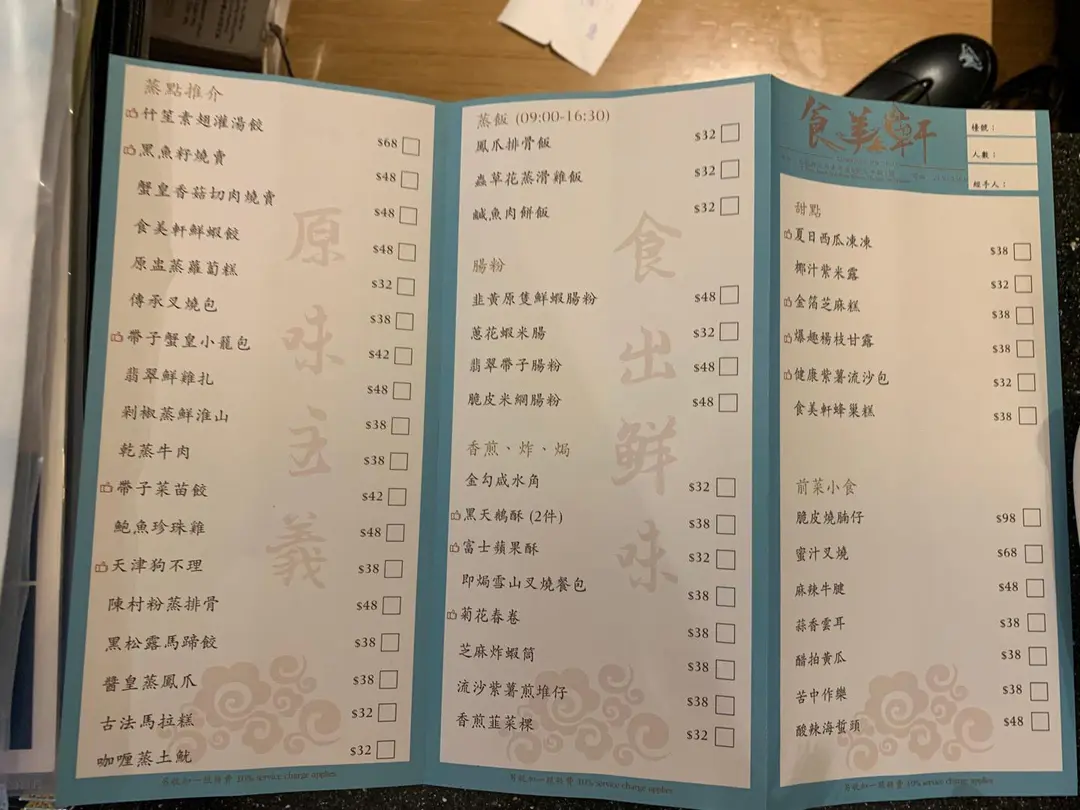 蒸點推介
什笙素翅灌湯餃 $68
黑魚籽燒賣 $48
蟹皇香菇切肉燒賣 $48
食美軒鮮蝦餃 $48
原盅蒸蘿蔔糕 $32
傳承叉燒包 $38
帶子蟹皇小籠包 $42
翡翠鮮雞扎 $48
剁椒蒸鮮淮山 $38
乾蒸牛肉 $38
帶子菜苗餃 $42
鮑魚珍珠雞 $48
天津狗不理 $38
陳村粉蒸排骨 $48
黑松露馬蹄餃 $38
醬皇蒸鳳爪 $38
古法馬拉糕 $32
咖喱蒸土魷 $32
原味主義
另收加一服務費 10% service charge applies
蒸飯 (09:00-16:30)
鳳爪排骨飯 $32
蟲草花蒸滑雞飯 $32
鹹魚肉餅飯 $32
腸粉
韭黃原隻鮮蝦腸粉 $48
蔥花蝦米腸 $32
翡翠帶子腸粉 $48
脆皮米網腸粉 $48
香煎、炸、焗
金勾咸水角 $32
黑天鵝酥 (2件) $38
富士蘋果酥 $32
即焗雪山叉燒餐包 $38
菊花春卷 $38
芝麻炸蝦筒 $38
流沙紫薯煎堆仔 $38
香煎韮菜粿 $32
食出鮮味
另收加一服務費 10% service charge applies
食美軒
檯號：
人數：
經手人：
甜點
夏日西瓜凍凍 $38
椰汁紫米露 $32
金箔芝麻糕 $38
爆趣楊枝甘露 $38
健康紫薯流沙包 $32
食美軒蜂巢糕 $38
前菜小食
脆皮燒腩仔 $98
蜜汁叉燒 $68
麻辣牛腱 $48
蒜香雲耳 $38
醋拍黃瓜 $38
苦中作樂 $38
酸辣海蜇頭 $48
另收加一服務費 10% service charge applies